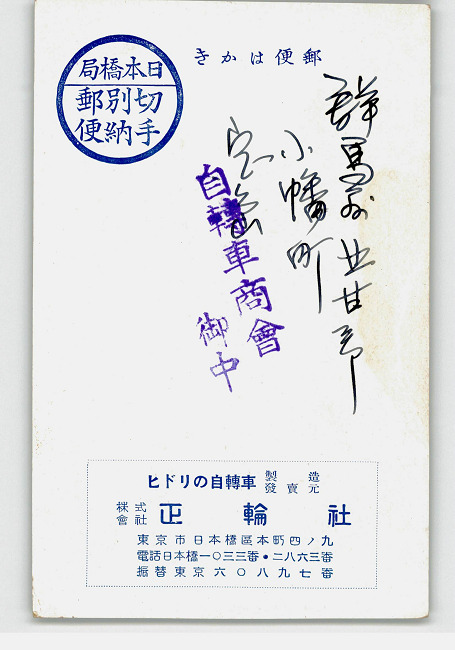 郵便はかき
日本橋局
切手
別納
郵便
群馬縣北甘郡
小幡町
自轉車商會
御中
ヒドリの自轉車 製造發賣元
株式會社 正輪社
東京市日本橋區本町四ノ九
電話日本橋一〇三三番・二八六三番
振替東京六〇八九七番